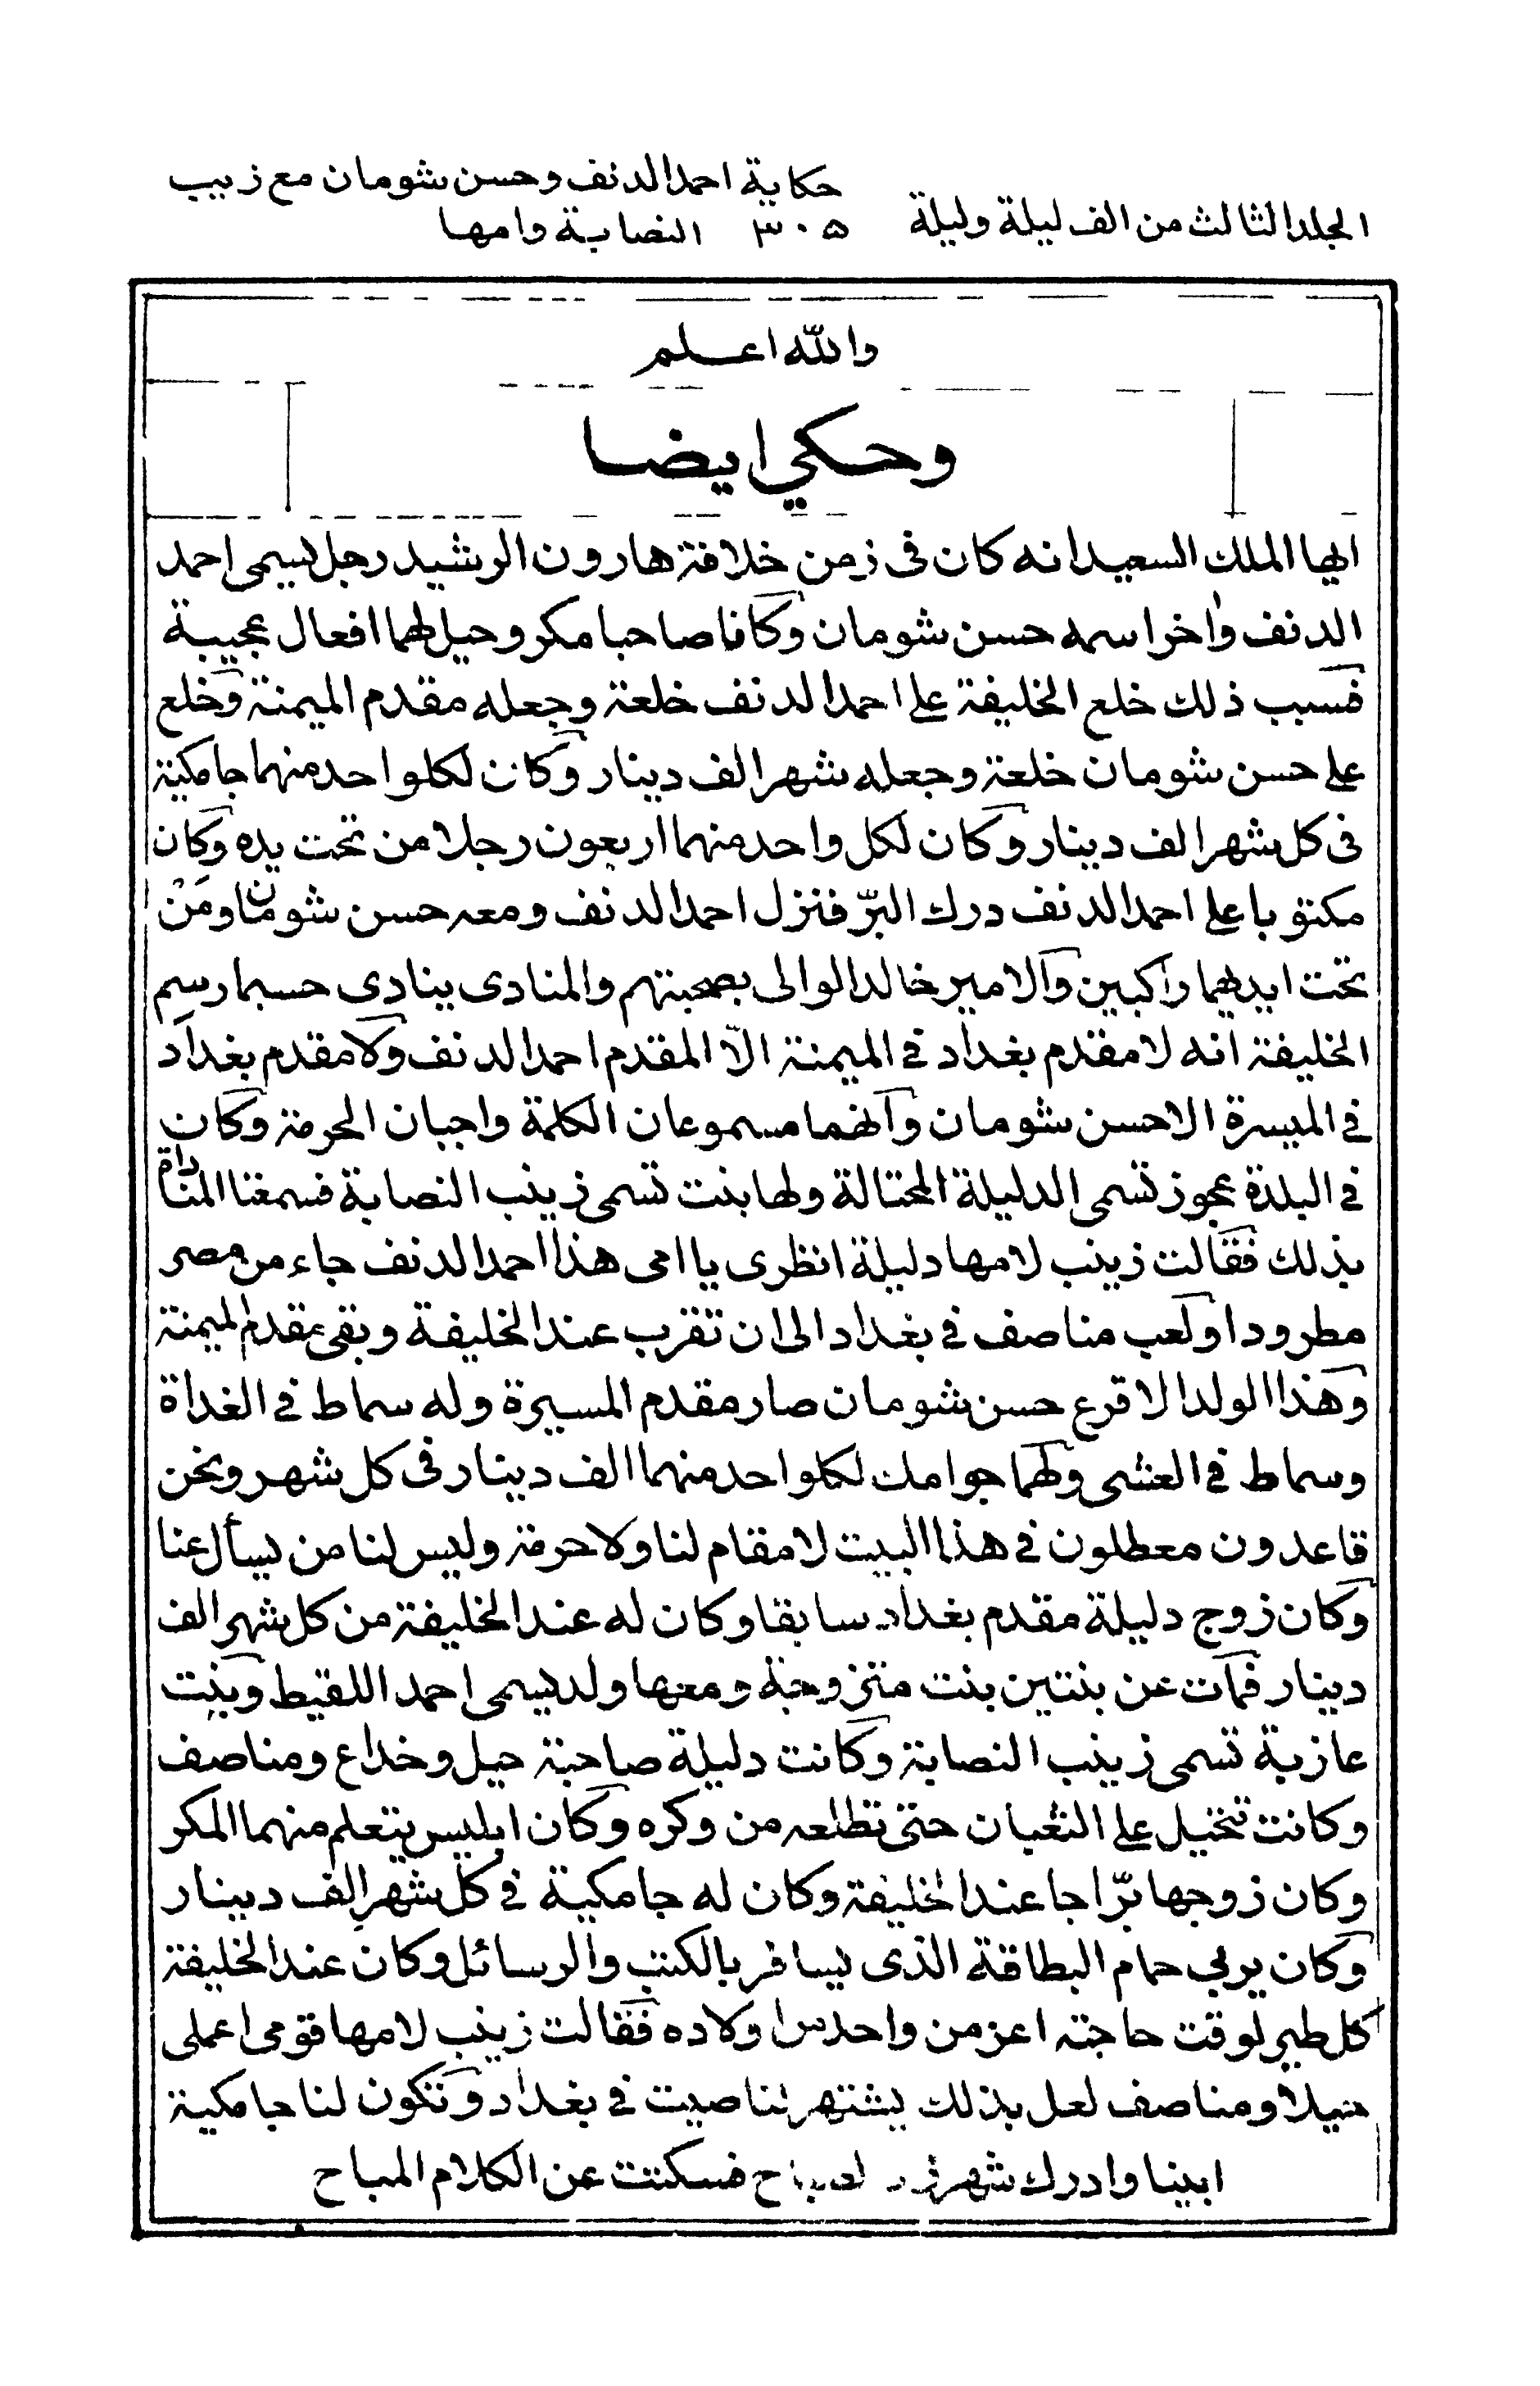 المجلد الثالث من الف ليلة وليلة
٣٠٥
حكاية احمد الدنف وحسن شومان مع زينب
النصابة وامها
والله اعلم
وحكي ايضا
ايها الملك السعيد انه كان فى زمن خلافة هارون الرشيد رجل يسمى احمد
الدنف واخر اسمه حسن شومان وكانا صاحبا مكر وحيل لهما افعال عجيبة
فسبب ذلك خلع الخليفة على احمد الدنف خلعة وجعله مقدم الميمنة وخلع
على حسن شومان خلعة وجعله شهر الف دينار وكان لكلو احد منهما جامكية
فى كل شهر الف دينار وكان لكل واحد منهما اربعون رجلا من تحت يده وكان
مكتوبا على احمد الدنف درك البرّ فنزل احمد الدنف ومعه حسن شومان ومَنْ
تحت ايديهما راكبين والامير خالد الوالى بصحبتهم والمنادى ينادى حسبما رسم
الخليفة انه لا مقدم بغداد في الميمنة الّا المقدم احمد الدنف ولا مقدم بغداد
في الميسرة الا حسن شومان وانهما مسموعان الكلمة واجبان الحرمة وكان
في البلدة عجوز تسمى الدليلة المحتالة ولها بنت تسمى زينب النصابة فسمعتا المناداة
بذلك فقالت زينب لامها دليلة انظرى يا امى هذا احمد الدنف جاء من مصر
مطرودا ولعب مناصف في بغداد الى ان تقرب عند الخليفة وبقى مقدم الميمنة
وهذا الولد الاقرع حسن شومان صار مقدم المسيرة وله سماط في الغداة
وسماط في العشى ولهما جوامك لكلو احد منهما الف دينار فى كل شهر ونحن
قاعدون معطلون في هذا البيت لا مقام لنا ولا حرمة وليس لنا من يسأل عنا
وكان زوج دليلة مقدم بغداد سابقا وكان له عند الخليفة من كل شهر الف
دينار فمات عن بنتين بنت متزوجة ومعها ولد يسمى احمد اللقيط وبنت
عازبة تسمى زينب النصابة وكانت دليلة صاحبة حيل وخداع ومناصف
وكانت تتحيل على الثعبان حتى تطلعه من وكره وكان ابليس يتعلم منهما المكر
وكان زوجها برّاجا عند الخليفة وكان له جامكية في كل شهر الف دينار
وكان يربي حمام البطاقة الذى يسافر بالكتب والرسائل وكان عند الخليفة
كل طير لوقت حاجته اعز من واحد من اولاده فقالت زينب لامها قومى اعملى
حيلا ومناصف لعل بذلك يشتهر لنا صيت في بغداد وتكون لنا جامكية
ابينا وادرك شهرزاد الصباح فسكتت عن الكلام المباح